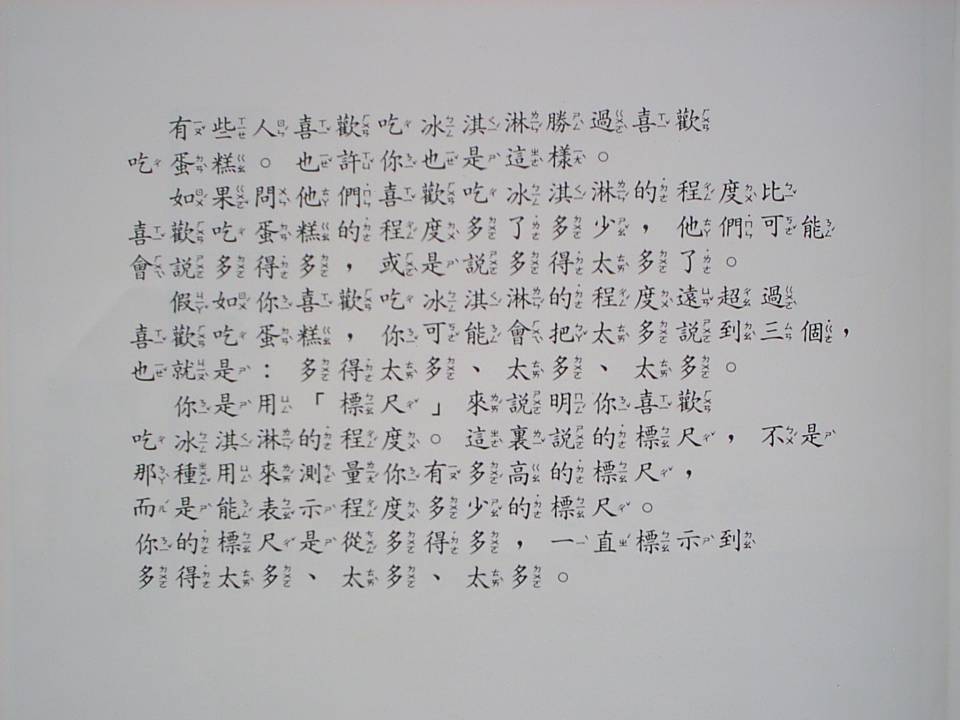 有些人喜歡吃冰淇淋勝過喜歡
吃蛋糕。也許你也是這樣。
如果問他們喜歡吃冰淇淋的程度比
喜歡吃蛋糕的程度多了多少，他們可能
會說多得多，或是說多得太多了。
假如你喜歡吃冰淇淋的程度遠超過
喜歡吃蛋糕，你可能會把太多說到三個，
也就是：多得太多、太多、太多。
你是用「標尺」來說明你喜歡
吃冰淇淋的程度。這裏說的標尺，不是
那種用來測量你有多高的標尺，
而是能表示程度多少的標尺。
你的標尺是從多得多，一直標示到
多得太多、太多、太多。